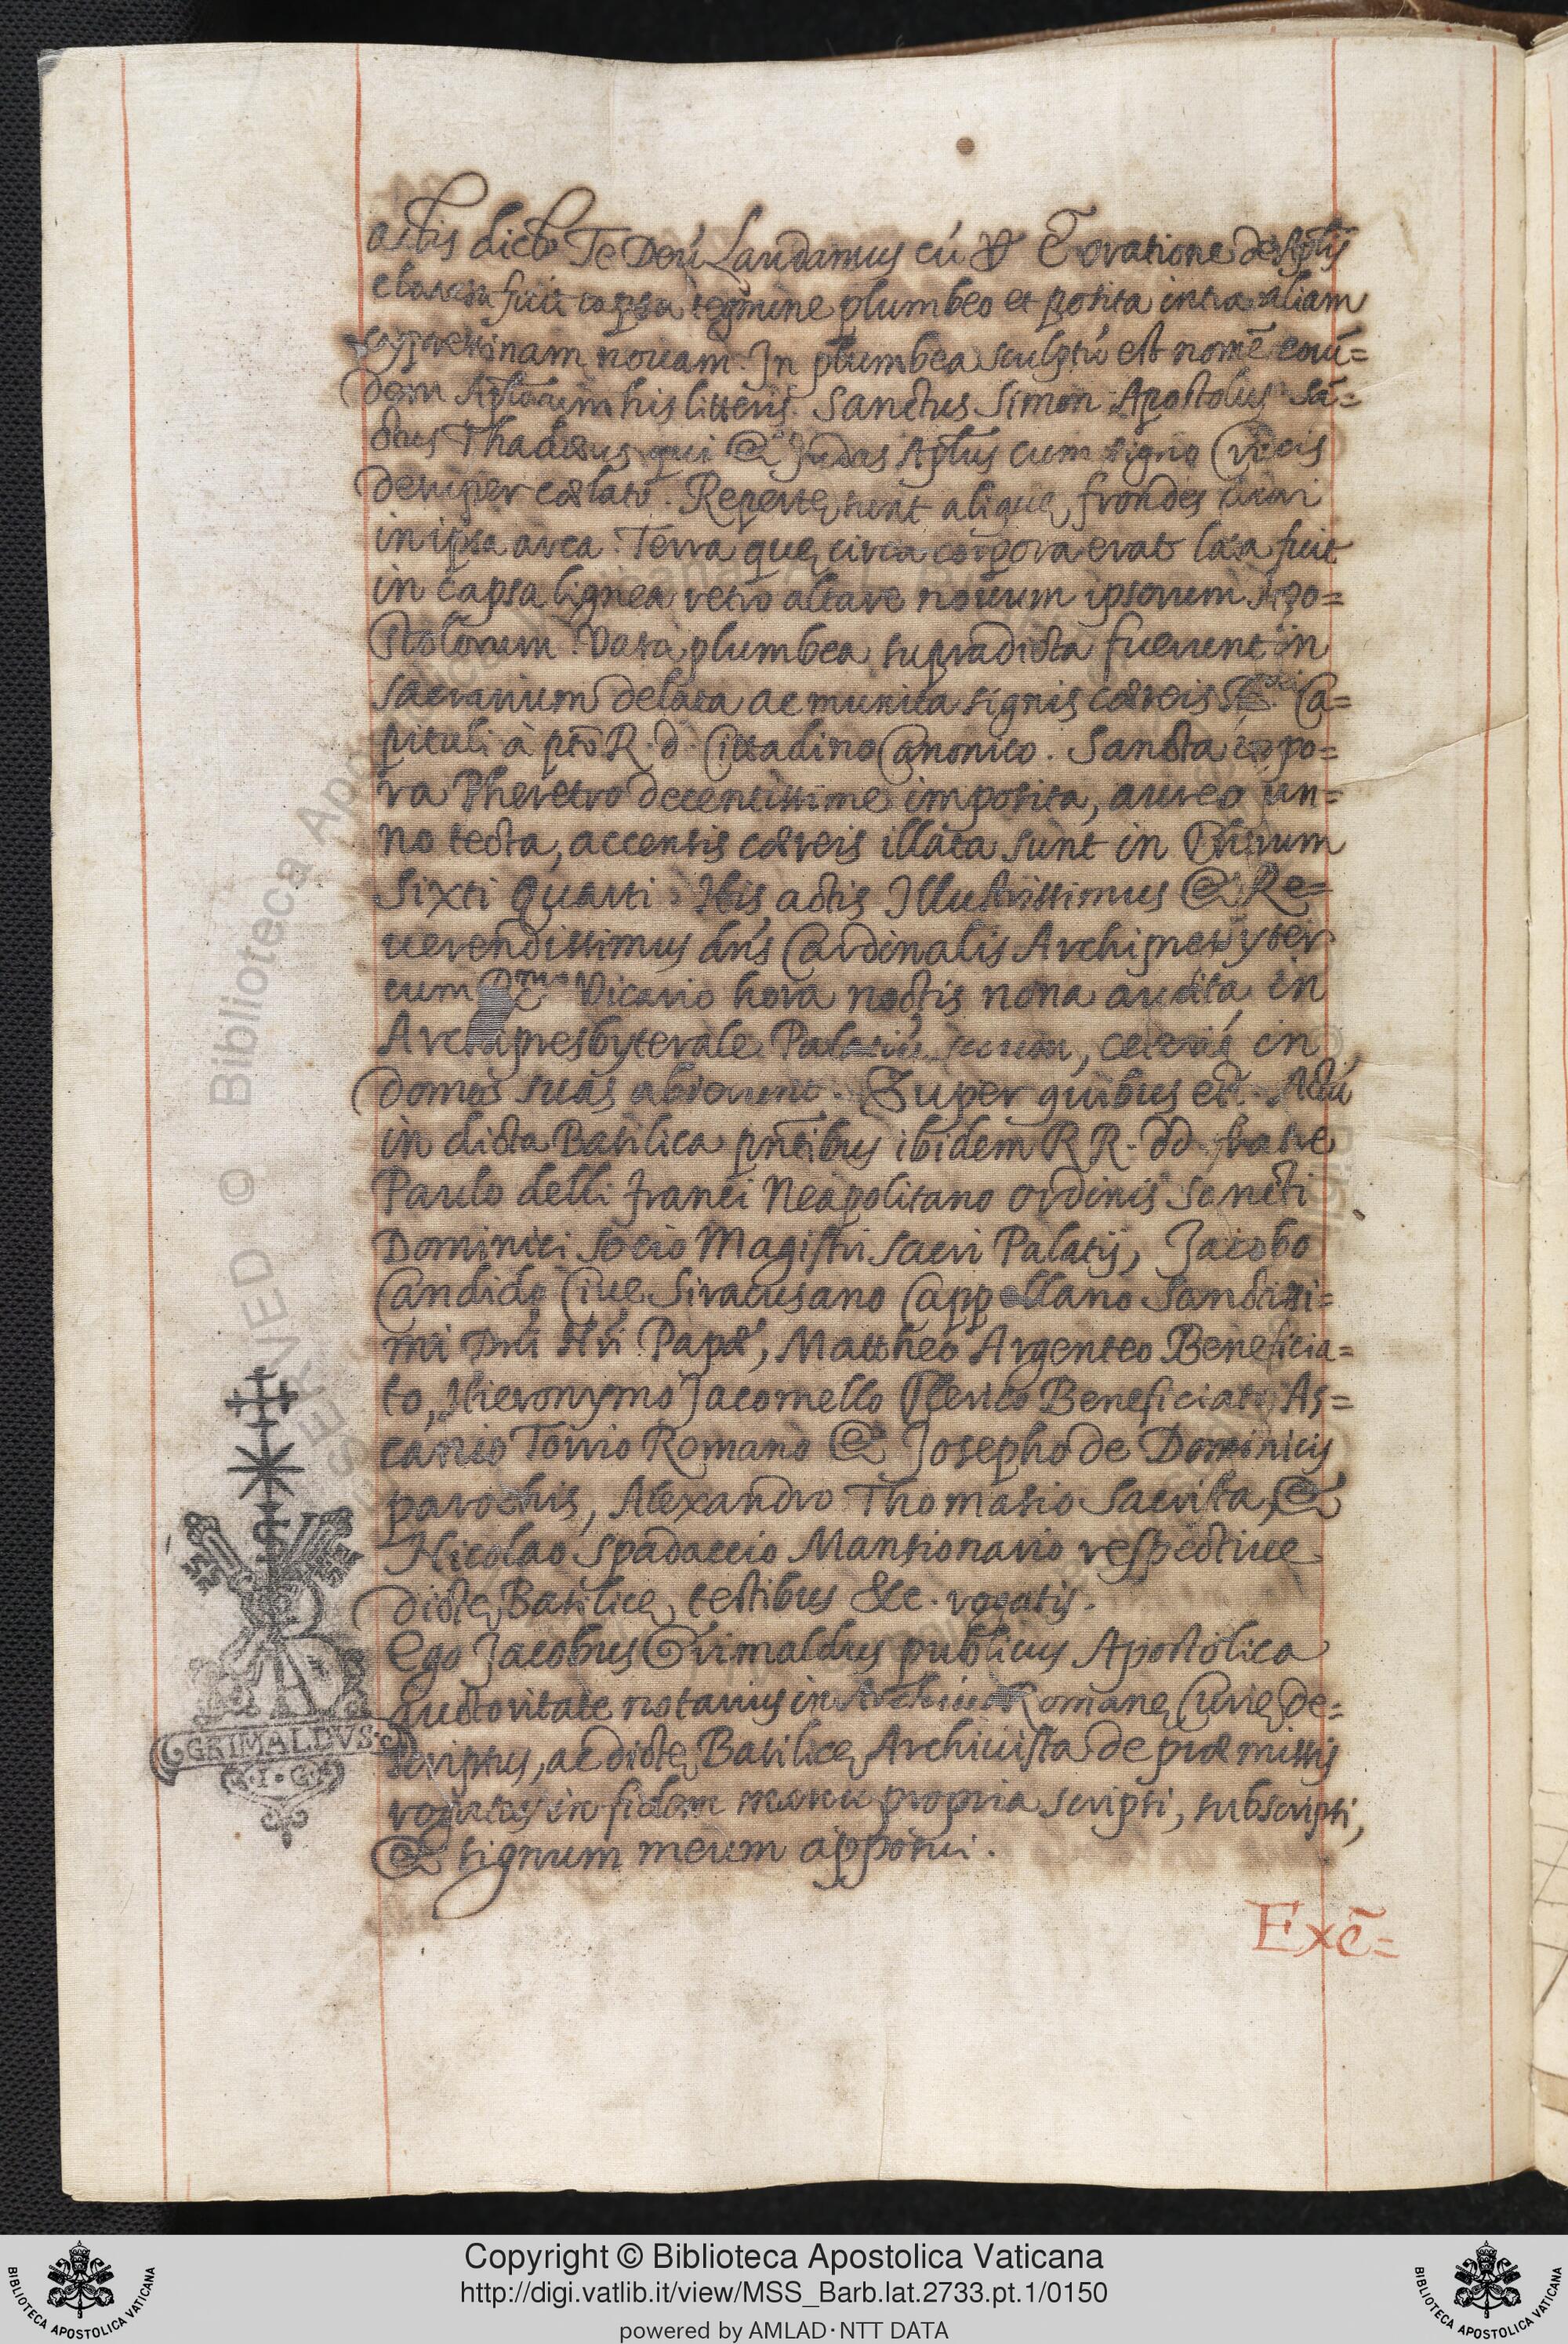 actis dicto Te Deú Laudamus cú ℣ et oratione de Aplis
clausa fuit capsa tegmine plumbeo et posita intra aliam
cypressinam nouam. In plumbea sculptú est nomē eorú=
dem Aplorum his litteris. Sanctus Simon Apostolus Sā=
ctus Thadæus qui & Judas Aplus cum signo Crucis
desuper cælato. Repertę sunt aliquę frondes
in ipsa arca. Terra quę circa corpora erat fuit
in capsa lignea retro altare nouum ipsorum Apo=
stolorum. Vasa plumbea supradicta fuerunt in
sacrarium delata ac munita signis cæreis Ca=
pituli à ptō R. d. Cittadino Canonico. Sancta corpo=
ra Pheretro decentissime imposita, aureo pan=
no tecta, accensis cæreis illata sunt in Chorum
Sixti Quarti. His actis Illustrissimus & Re=
uerendissimus dńs Cardinalis Archipresbyter
cum Vicario hora noctis nona audita in
Archipresbyterale Palatiú suum, cęterí in
domos suas abierunt. Super quibus est. Actú
in dicta Basilica pńtibus ibidem RR. dd. fratre
Paulo delli franci Neapolitano ordinis Sancti
Dominici socio Magistri sacri Palatij, Jacobo
Candido Ciue Siracusano Cappellano Sanctissi=
mi Dńi Nri Papæ, Mattheo Argenteo Beneficia=
to, Hieronymo Jacomello Clerico Beneficiato, As=
canio Torrio Romano & Josepho de Dominicis
parochis, Alexandro Thomasio Sacrista, &
Nicolao Spadaccio Mansionario respectiue
dictę Basilicę testibus &c. rogatis.
Ego Jacobus Grimaldus publicus Apostolica
auctoritate notarius in Archiuio Romanę Curię de=
scriptus, ac dictę Basilicę Archiuista de præmissis
rogatus in fidem manu propria scripsi, subscripsi,
& signum meum apposui.
GRIMALDVS
·I·G·
Exc̄=
Copyright © Biblioteca Apostolica Vaticana
http://digi.vatlib.it/view/MSS_Barb.lat.2733.pt.1/0150
powered by AMLAD·NTT DATA
BIBLIOTECA APOSTOLICA VATICANA
BIBLIOTECA APOSTOLICA VATICANA